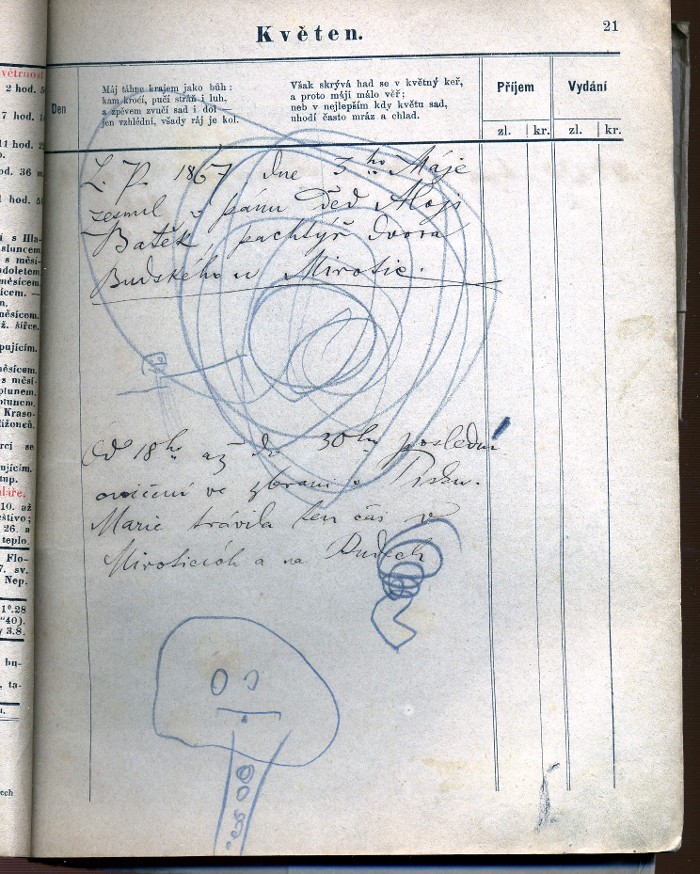 21
Květen.
Den
Máj táhne krajem jako bůh:
kam kročí, pučí stráň i luh,
a zpěvem zvučí sad i dol —
jen vzhlédni, všady ráj je kol.
Však skrývá had se v květný keř,
a proto máji málo věř;
neb v nejlepším kdy květu sad,
uhodí často mráz a chlad.
Příjem
Vydání
zl. kr. zl. kr.
L. P. 1867 dne 3ho Máje
zesnul v pánu Děd Alojs
Batěk pachtýř dvora
Budského u Mirotic.
Od 18ho až do 30ho poslední
cvičení ve zbrani v Písku.
Marie trávila ten čas v
Miroticích a na
větrnost
2 hod.
7 hod.
11 hod.
od. 36 m
hod.
í s Hla-
sluncem
s měsí-
odoletem
měsícem.
ícem. —
n.
měsícem.
ž. šířce.
pujícím.
měsícem.
s měsí-
ptunem.
ptunem.
Kraso-
ižonců.
rci se
ujícím.
tup.
láře.
10. až
eštivo;
26. a
teplo.
Flo-
7. sv.
Nep.
1°.28
"40).
y 3.8.
bu-
, ta-
ech